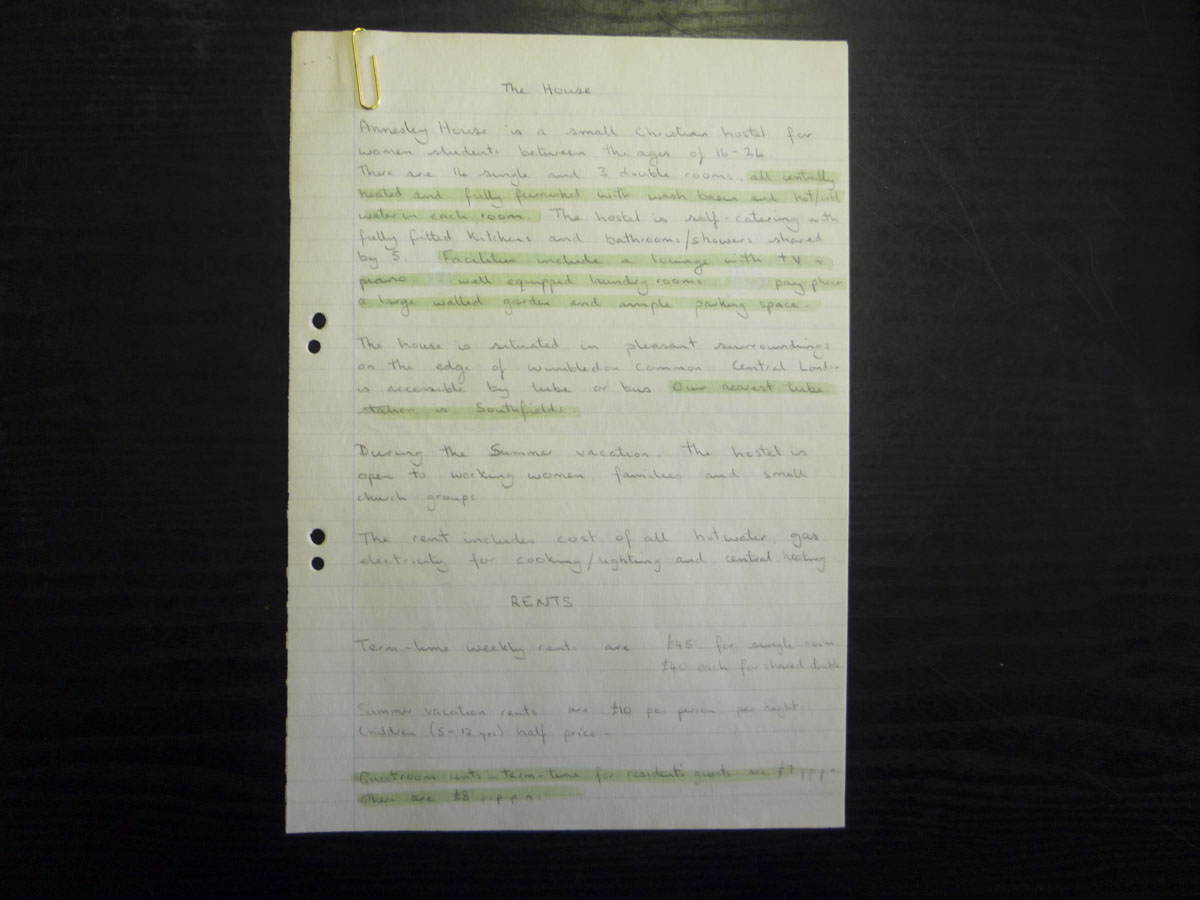 The House
Annesley House is a small Christian hostel for
women students between the ages of 16-24.
There are 14 single and 3 double rooms, all centrally
heated and fully furnished with wash basin and hot/cold
water in each room. The hostel is self-catering with
fully fitted kitchens and bathrooms/showers shared
by 5. Facilities include a lounge with TV +
piano, well equipped laundry rooms, pay phone
a large walled garden and ample parking space.
The house is situated in pleasant surroundings
on the edge of Wimbledon Common. Central London
is accessible by tube or bus Our nearest tube
station is Southfields.
During the Summer vacation, the hostel is
open to working women, families and small
church groups
The rent includes cost of all hot water, gas
electricity for cooking/lighting and central heating
RENTS
Term-time weekly rents are £45 for single room
£40 each for shared double
Summer vacation rents are £10 per person per night
Children (5-12 yrs) half price.
Guestroom rents in term-time for residents' guests are £7 p.p.p.n.
others are £8 p.p.p.n.